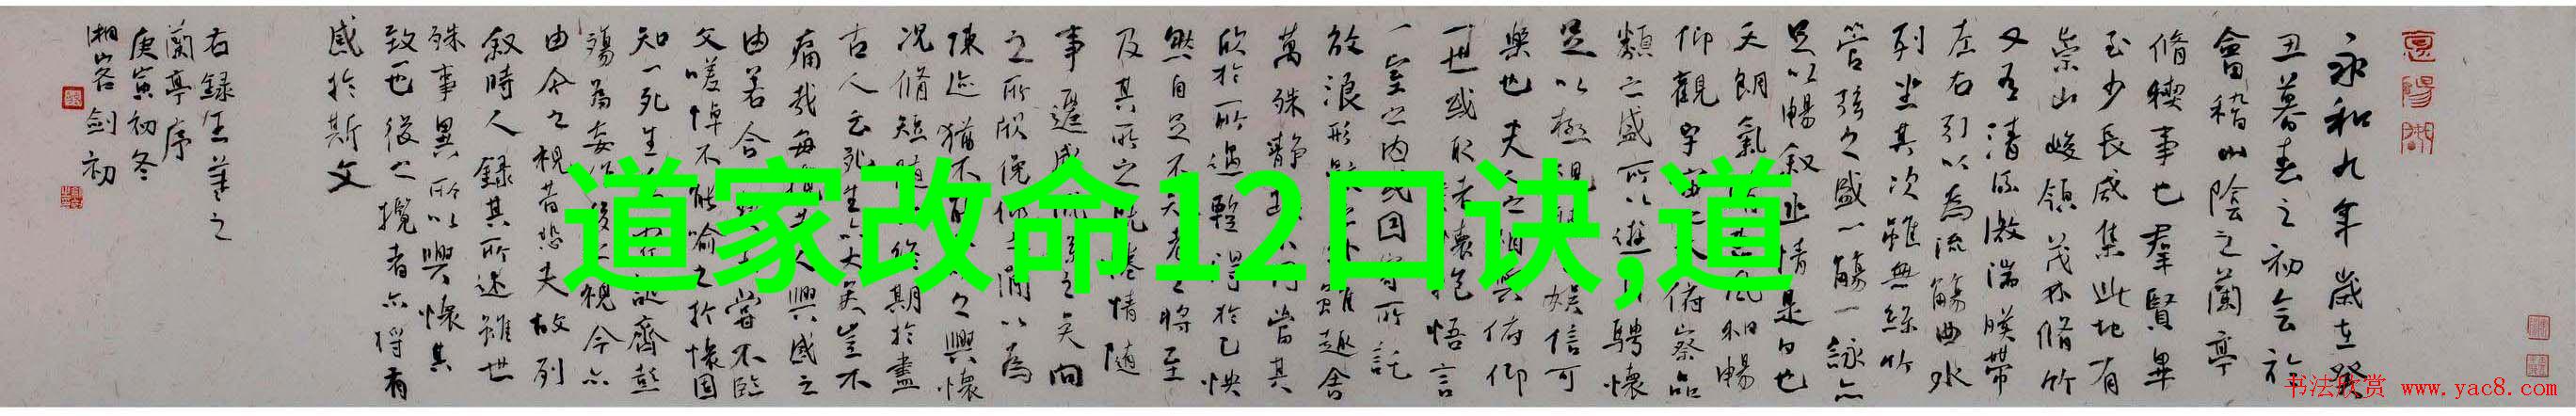 永和九年歲在癸
丑暮春之初会於
會稽山陰之蘭亭
脩稧事也羣賢畢
至少長咸集此地有
崇山峻領茂林脩竹
又有清流激湍暎帶
左右引以為流觴曲水
列坐其次雖無絲竹
管弦之盛一觴一詠亦
足以暢叙幽情是日也
天朗氣風和暢
仰觀宇宙之大俯察品
類之盛所以遊目騁懷
足以極視娛信可
樂也夫人之相與俯仰
一世或取諸懷抱悟言
一室之内或因寄所託
放浪形骸之外雖趣舍
萬殊静躁不同當其
欣於所遇暫得於己怏
然自足不知老之將至
及其所之既惓情隨
事遷感慨係之矣向
之所欣俛仰之間以為
陳迹猶不能之興懷
况脩短隨化終期於盡
古人云死生亦大矣豈不
痛哉每攬昔人興感之
由若合一契未嘗不臨
文嗟悼不能喻之於懷固
知一死生為虛誕齊彭
殤為妄作後之視今亦
由今之視昔悲夫故列
叙時人錄其所述雖世
殊事異所以興懷其
致一也後之攬者亦将有
感於斯文
右録王羲之
蘭亭序
庚寅初冬
湘客剑初
道家改命12口诀,道
书法欣赏 www.yac8.com